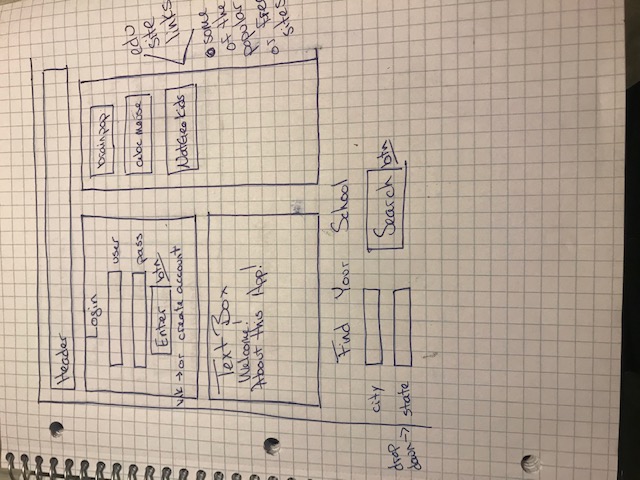 Header
Login
user
pass
Enter
btn
link → or create account
Text Box
Welcome!
About this App!
brainpop
abc mouse
NatGeo Kids
edu
site
links
some
of the
popular
or free
sites
Find Your School
city
drop
down →
state
Search
btn